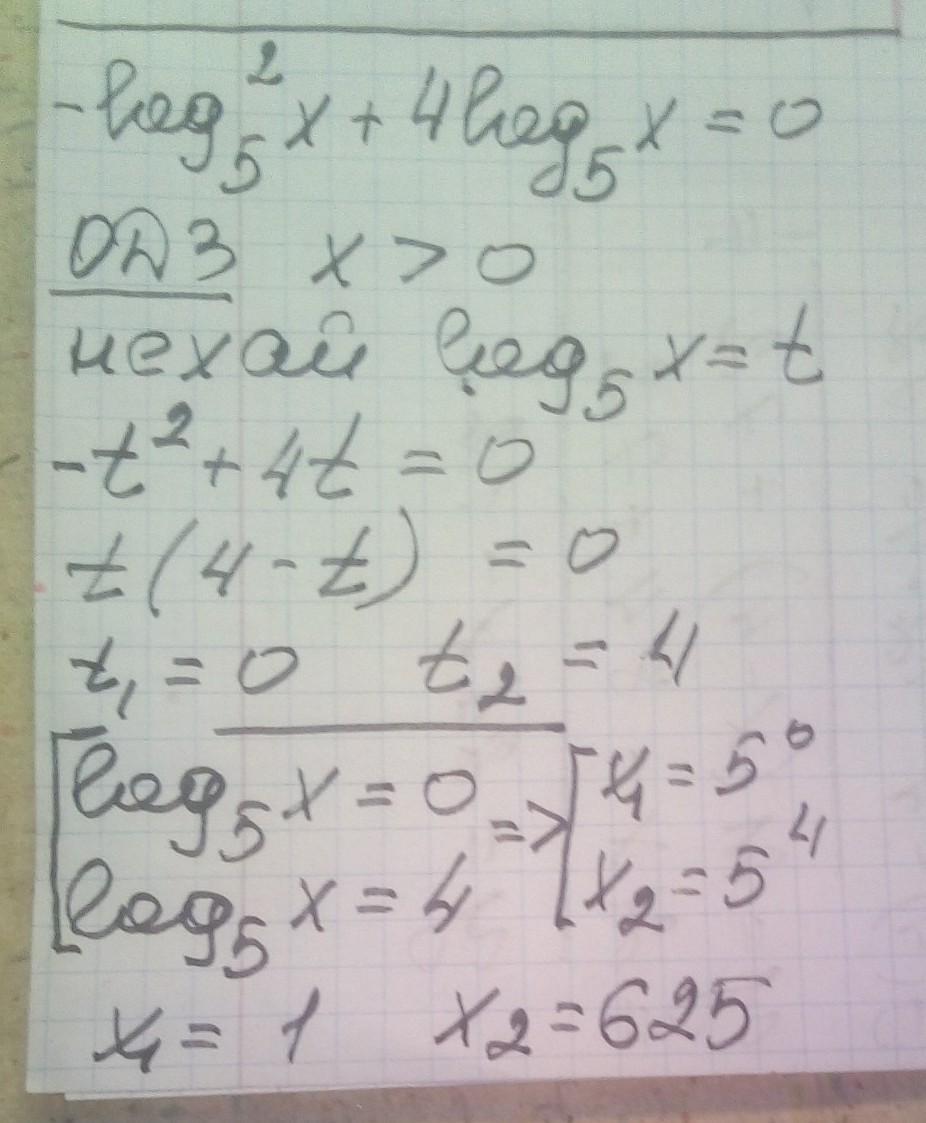 -log₅²x + 4log₅x = 0
ОДЗ x > 0
нехай log₅x = t
-t² + 4t = 0
t(4 - t) = 0
t₁ = 0 t₂ = 4
[log₅x = 0 => [x₁ = 5⁰
[log₅x = 4 [x₂ = 5⁴
x₁ = 1 x₂ = 625